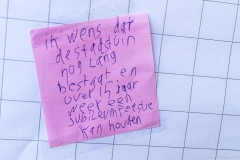 ik wens dat
de stadstuin
nog lang
bestaat en
over 15 jaar
weer een
jubileumfeestje
kan houden